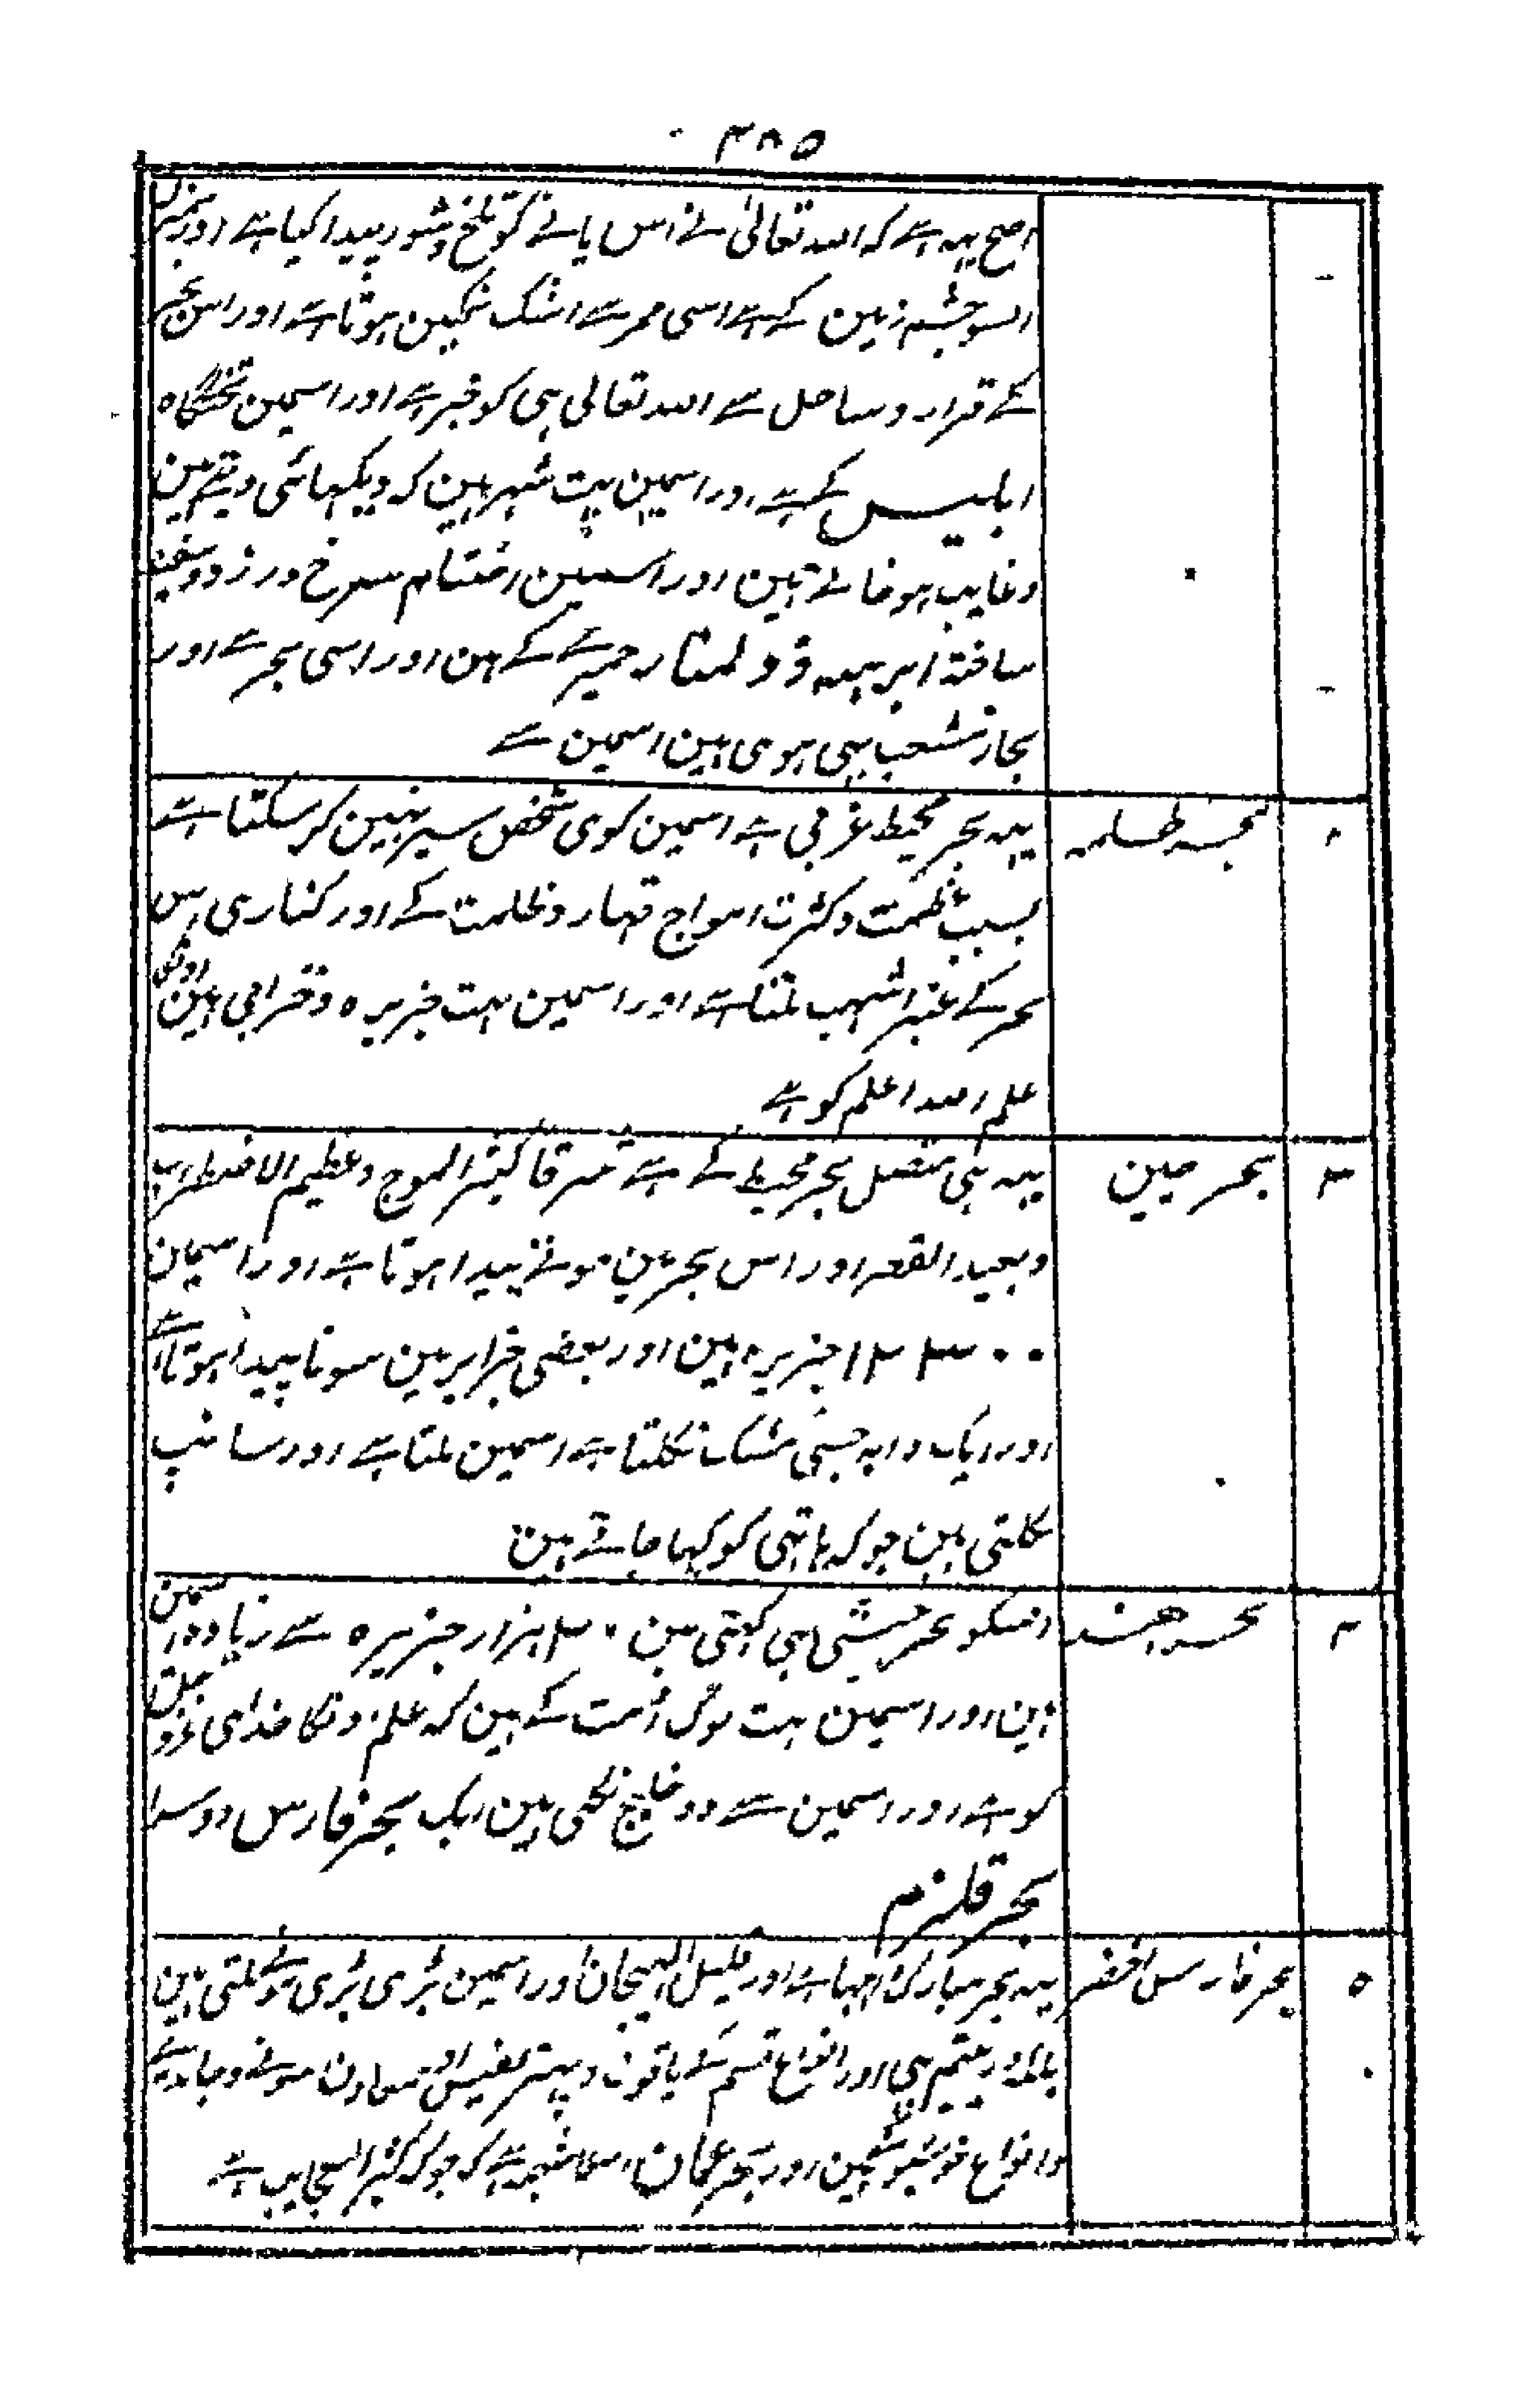 ۳۸۵
اصح یہہ ہے کہ اللہ تعالیٰ نے اس پانے کو تلخ و شور پیدا کیا ہے اور
السو چشمہ زمین کے ہے اسی ممر سے اشک نمکین ہوتا ہے اور اس بحر
کے قرار و ساحل سے اللہ تعالی ہی کو خبر ہے اور اسمین تختگاہ
ابلیس کے ہے اور اسمین بہت شہر ہین کہ دیکہائی دیتے ہین
و غایب ہو جاتے ہین اور اسمین اصنام سرخ و زرد و سبز
ساختہ ابرہہ ذو لمنار حمیری کے ہین اور اسی بحر سے اور
بحار منشعب بہی ہوی ہین اسمین سے
۲ بحر ظلمہ یہہ بحر محیط غربی ہے اسمین کوی شخص سیر نہین کر سکتا ہے
بسبب ظلمت و کثرت امواج قہار و ظلمت کے اور کناری اس
بحر کے عنبر اشہب ملتا ہے اور اسمین بہت جزیرہ و خرابی ہین اونکا
علم اللہ اعلم کو ہے
۳ بحر صین یہہ بہی متصل بحر محیط کے ہے شرقا کثیر الموج و عظیم الاضطراب
و بعید القعر اور اس بحر مین موتے پیدا ہوتا ہے اور اسمین
۱۲۳۰۰ جزیرہ ہین اور بعضی جزایر مین سونا پیدا ہوتا ہے
اور ایک دابہ جسی مشک نکلتا ہے اسمین ملتا ہے اور سانپ
نکلتی ہین جو کہ ہاتہی کو کہا جاتے ہین
۴ بحر ہند اسکو بحر حبشی بہی کہتی ہین ۳۰ ہزار جزیرہ سے زیادہ اسمین
ہین اور اسمین بہت لوگ امت کے ہین کہ علم اونکا خدای عزوجل
کو ہے اور اسمین سے دو خلیج نکلی ہین ایک بحر فارس دوسرا
بحر قلزم
۵ بحر فارس اخضر یہہ بحر مبارک اچہا ہے اور قلیل الہیجان اور اسمین بڑی بڑی موتے ملتی ہین
بلکہ در یتیم بہی اور انواع قسم کے یاقوت و پتہر نفیس اور معادن سونے و چاندی
و انواع خوشبو ہین اور بحر عمان اسکا شعبہ ہے کہ جو کہ کثیر العجایب ہے